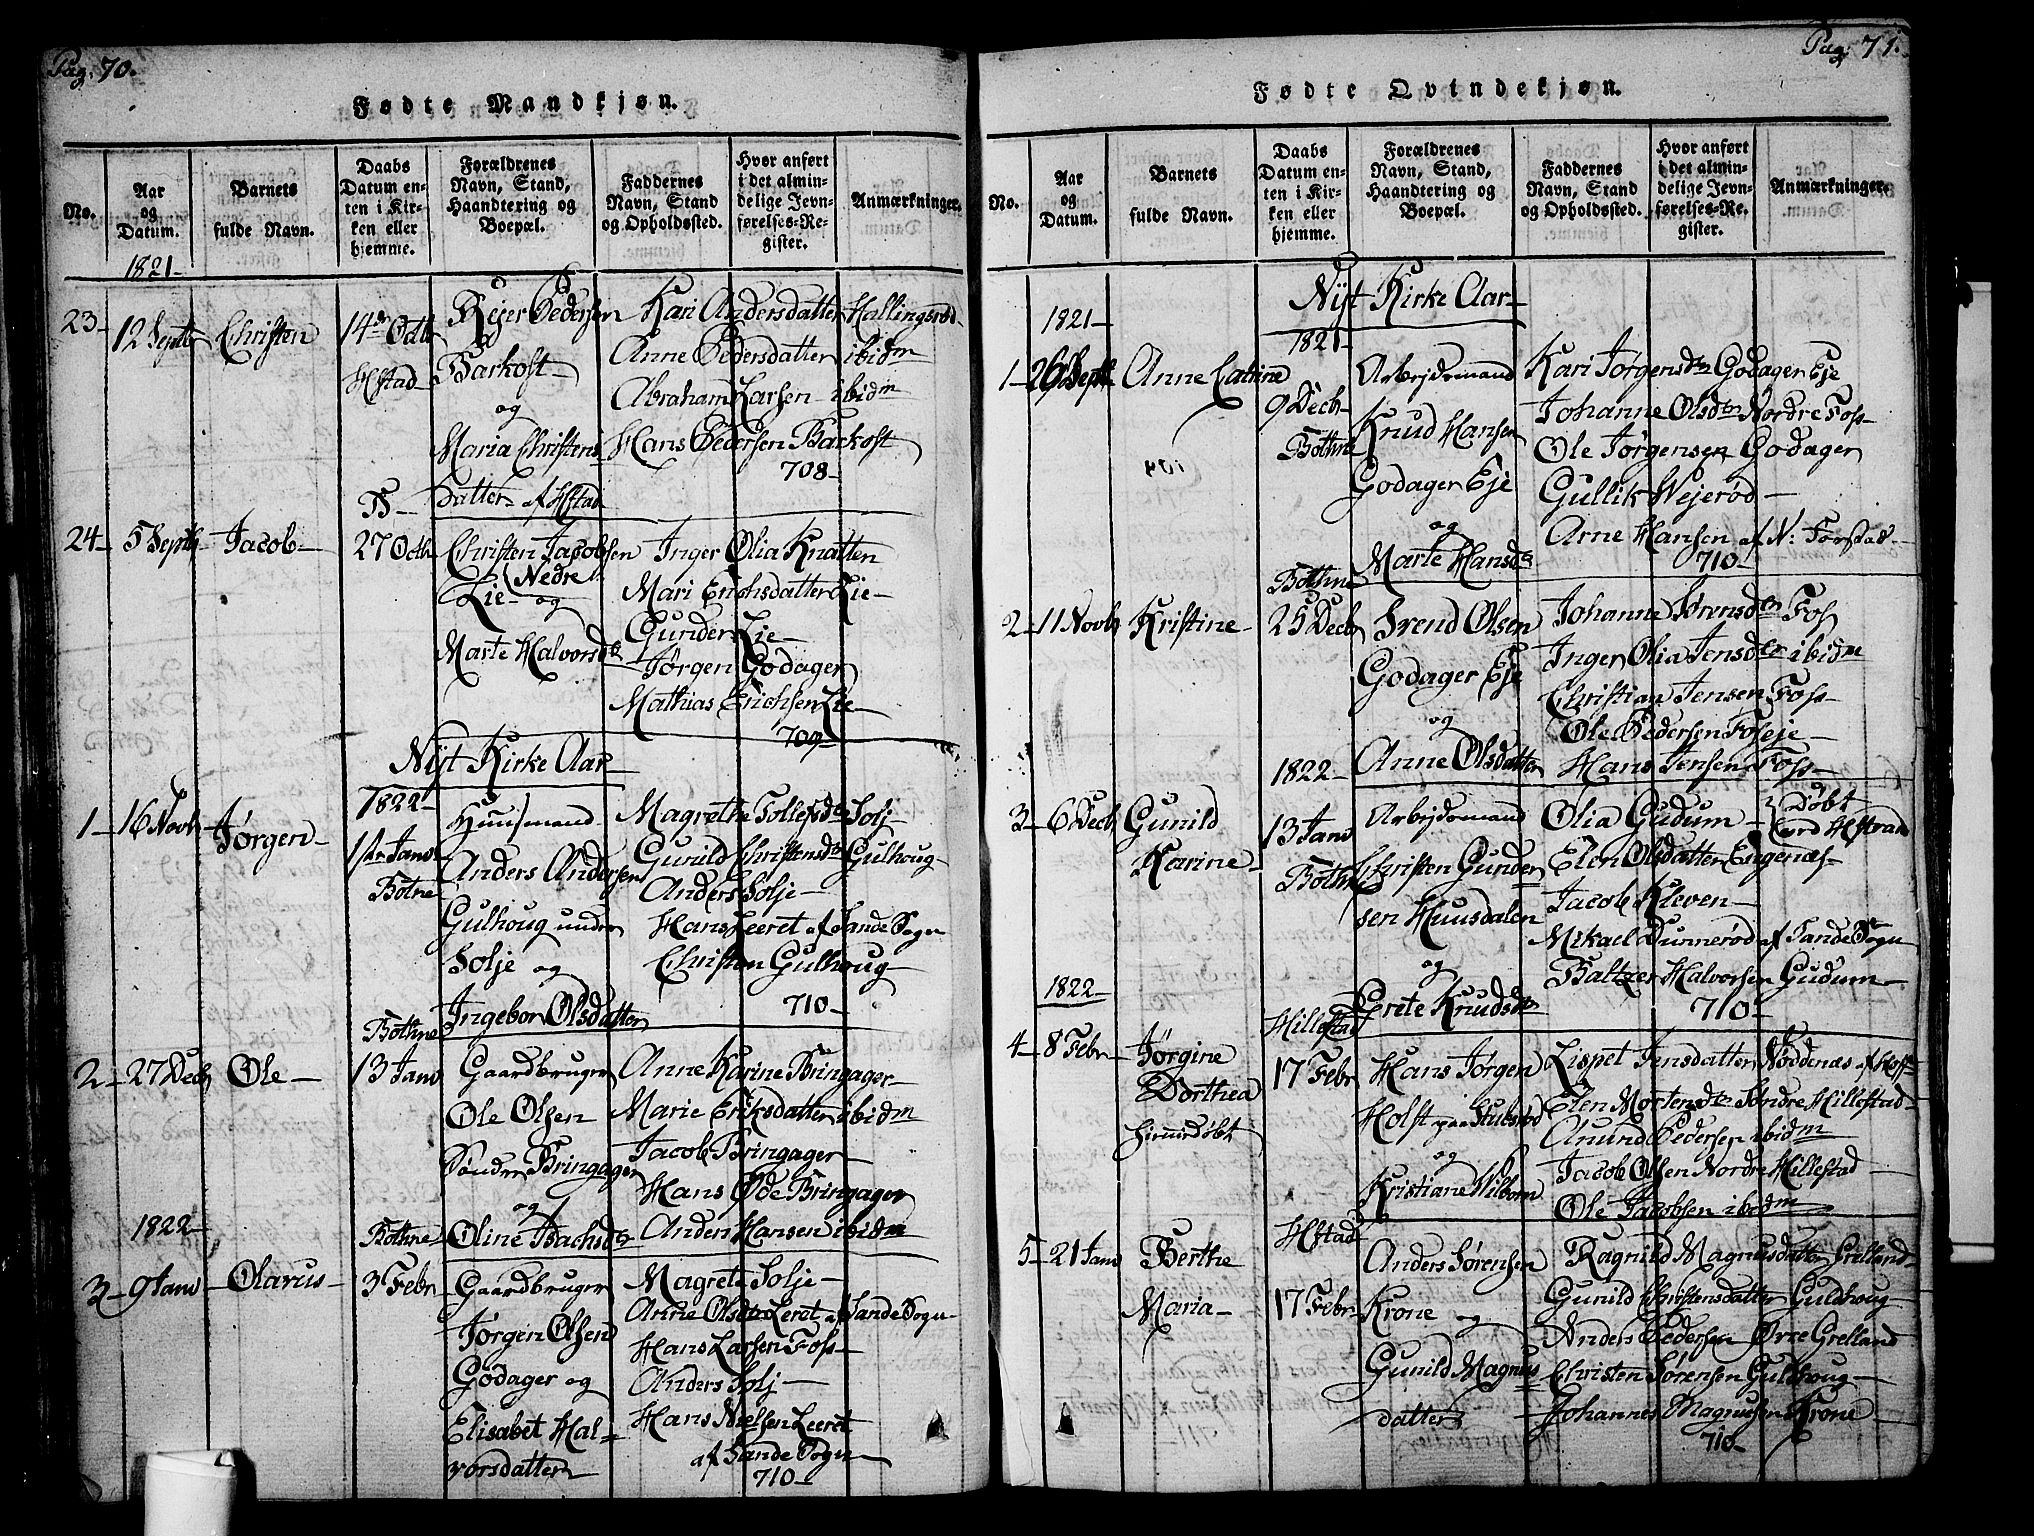 Pag. 70.
Fødte Mandkjøn.
No.
Aar
og
Datum.
Barnets
fulde Navn.
Daabs
Datum en-
ten i Kir-
ken eller
hjemme.
Forældrenes
Navn, Stand,
Haandtering og
Boepæl.
Faddernes
Navn, Stand
og Opholdssted.
Hvor anført
i det almin-
delige Jevn-
førelses-Re-
gister.
Anmærkninger.
1821-
23- 12 Septb Christen 14de Octb
Hfstad
B-
Rejer Pedersen
Barkost-
og
Maria Christens
datter af Hfstad
Kari Andersdatter Hallingsrød-
Anne Pedersdatter ibidm
Abraham Larsen ibidm
Hans Pedersen Barkost
708-
24- 5 Septb Jacob- 27 Octb
Christen Jacobsen
Nedre
Lie- og
Marte Halvorsdtr
Inger Olia Knatten
Mari Erichsdatter Lie-
Gunder Lie-
Jørgen Godager
Mathias Erichsen Lie-
709-
Nyt Kirke Aar-
1822-
1- 16 Novb Jørgen- 1ste Janv
Botne
Huusmand
Anders Andersen
Gulhoug under
Solje og
Ingebor Olsdatter
Magrethe Tollefsdtr Solj-
Gunild Christensdtr Gulhoug-
Anders Solje-
Hans Leeret af Sande Sogn
Christen Gulhoug-
710-
Bothne
2- 27 Decb Ole- 13 Janv
Gaardbruger
Ole Olsen
Sønder Bringager
og
Oline Isachsdtr
Anne Karine Bringager-
Marie Eriksdatter ibidm
Jacob Bringager-
Hans Øde Bringager
Anders Hansen ibidm
1822-
Bothne-
3- 9 Janv Olarus- 3 Febr
Gaardbruger
Jørgen Olsen
Godager og
Elisabet Hal-
vorsdatter
Magrete Solje-
Anne Olsdtr Leret af Sande Sogn-
Hans Larsen Fos-
Anders Solj-
Hans Nielsen Leeret
af Sande Sogn
710-
Pag. 71.
Fødte Qvindekjøn.
No.
Aar
og
Datum.
Barnets
fulde Navn.
Daabs
Datum en-
ten i Kir-
ken eller
hjemme.
Forældrenes
Navn, Stand,
Haandtering og
Boepæl.
Faddernes
Navn, Stand
og Opholdssted.
Hvor anført
i det almin-
delige Jevn-
førelses-Re-
gister.
Anmærkninger.
Nyt Kirke Aar-
1821-
1821-
1- 26 Septb Anne Catrine
9 Decb-
Bothne
Arbejdsmand
Knud Hansen
Godager Eje
og
Marte Hansdtr
Kari Jørgensdtr Godager Eje
Johanne Olsdtr Nordre Fos-
Ole Jørgensen Godager
Gullik Wejerød-
Arne Hansen af N: Forstad-
710-
Bothne
2- 11 Novb Kristine- 25 Decb
Svend Olsen
Godager Eje
og
Anne Olsdatter
Johanne Sørensdtr Fos
Inger Olia Jensdtr ibidm
Christian Jensen Fos-
Ole Pedersen Foseje-
Hans Jensen Fos-
1822-
3- 6 Decb Gunild
Karine-
13 Janv
Bothne
Arbejdsmand
Christen Gunder
sen Huusdalen
og
Grete Knudsdtr
Olia Gudum-
Elen Olsdatter Engenæs-
Jacob Kleven-
Mikael Dunnerød af Sande Sogn
Baltzer Halvorsen Gudum-
710-
døbt
1822-
Hillestad
4- 8 Febr Jørgine
Dorthea
hjemmedøbt
17 Febr
Hans Jørgen
Holst paa
og
Kristiane Wibom
Lispet Jensdatter Noddenæs af Hoff-
Elen Mortensdtr Søndre Hillestad-
Amund Pedersen ibidm
Jacob Olsen Nordre Hillestad-
Ole Jacobsen ibidm
Hfstad
5- 21 Janv Berthe
Maria-
17 Febr
Anders Sørensen
Krone og
Gunild Magnus
datter
Ragnild Magnusdatter Grelland-
Gunild Christensdatter Guldhoug
Anders Pedersen Øvre Grelland
Christen Sørensen Guldhoug-
Johannes Magnusen Krone-
710-